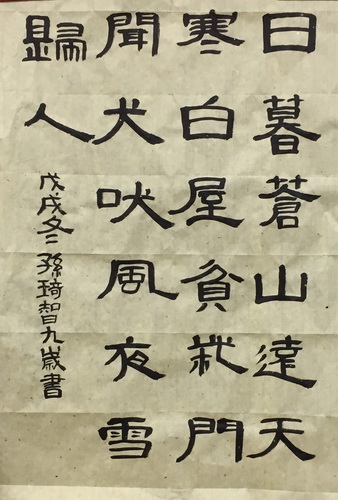 日暮蒼山遠天
寒白屋貧柴門
聞犬吠風夜雪
歸人
戊戌冬孫琦智九歲書